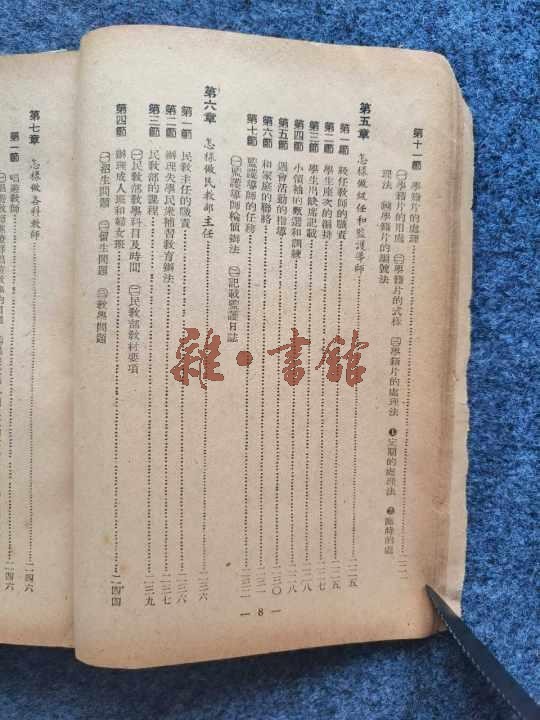 第十一節 學籍片的處理……二二一
㊀學籍片的用處 ㊁學籍片的式樣 ㊂學籍片的處理法 ❶定期的處理法 ❷臨時的處
理法 ㊃學籍片的編號法
第五章 怎樣做級任和監護導師……二二五
第一節 級任教師的職責……二二五
第二節 學生座次的編排……二二五
第三節 學生出缺席記載……二二七
第四節 小領袖的甄選和訓練……二二八
第五節 週會活動的指導……二三〇
第六節 和家庭的聯絡……二三一
第七節 監護導師的任務……二三二
㊀監護導師輪值辦法 ㊁記載監護日誌
第六章 怎樣做民教部主任……二三六
第一節 民教主任的職責……二三六
第二節 辦理失學民衆補習教育辦法……二三七
第三節 民教部的課程……二三九
㊀民教部教學科目及時間 ㊁民教部教材要項
第四節 辦理成人班和婦女班……二四四
㊀招生問題 ㊁留生問題 ㊂教學問題
— 8 —
第七章 怎樣做各科教師……二四六
第一節 唱遊教師……二四六
雜·書館